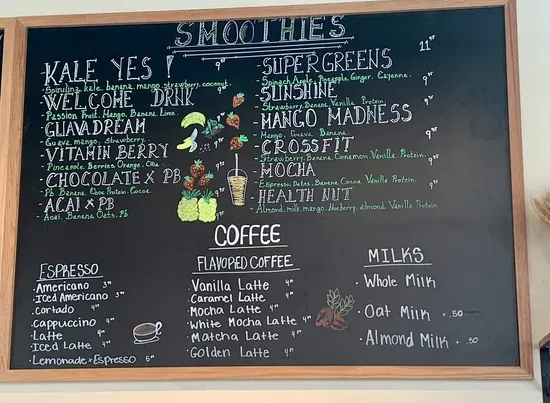 SMOOTHIES
KALE YES !
Spirulina, kale, banana, mango, strawberry, coconut.
WELCOME DRINK
Passion Fruit, Mango, Banana, Lime.
GUAVA DREAM
Guava, mango, strawberry.
VITAMIN BERRY
Pineapple, Berries, Orange, Chia
CHOCOLATE x PB
Pb, Banana, Choc Protein, Cocoa.
ACAI x PB
Acai, Banana, Oats, Pb
SUPER GREENS
Spinach, Apple, Pineapple, Ginger, Cayenne.
SUNSHINE
Strawberry, Banana, Vanilla Protein
MANGO MADNESS
Mango, Guava, Banana.
CROSSFIT
Strawberry, Banana, Cinnamon, Vanilla Protein.
MOCHA
Espresso, Dates, Banana, Cocoa, Vanilla Protein.
HEALTH NUT
Almond milk, mango, blueberry, almond, Vanilla Protein
COFFEE
ESPRESSO
Americano
Iced Americano
Cortado
Cappuccino
Latte
Iced Latte
Lemonade x Espresso
FLAVORED COFFEE
Vanilla Latte
Caramel Latte
Mocha Latte
White Mocha Latte
Matcha Latte
Golden Latte
MILKS
Whole Milk
Oat Milk + .50
Almond Milk + .50